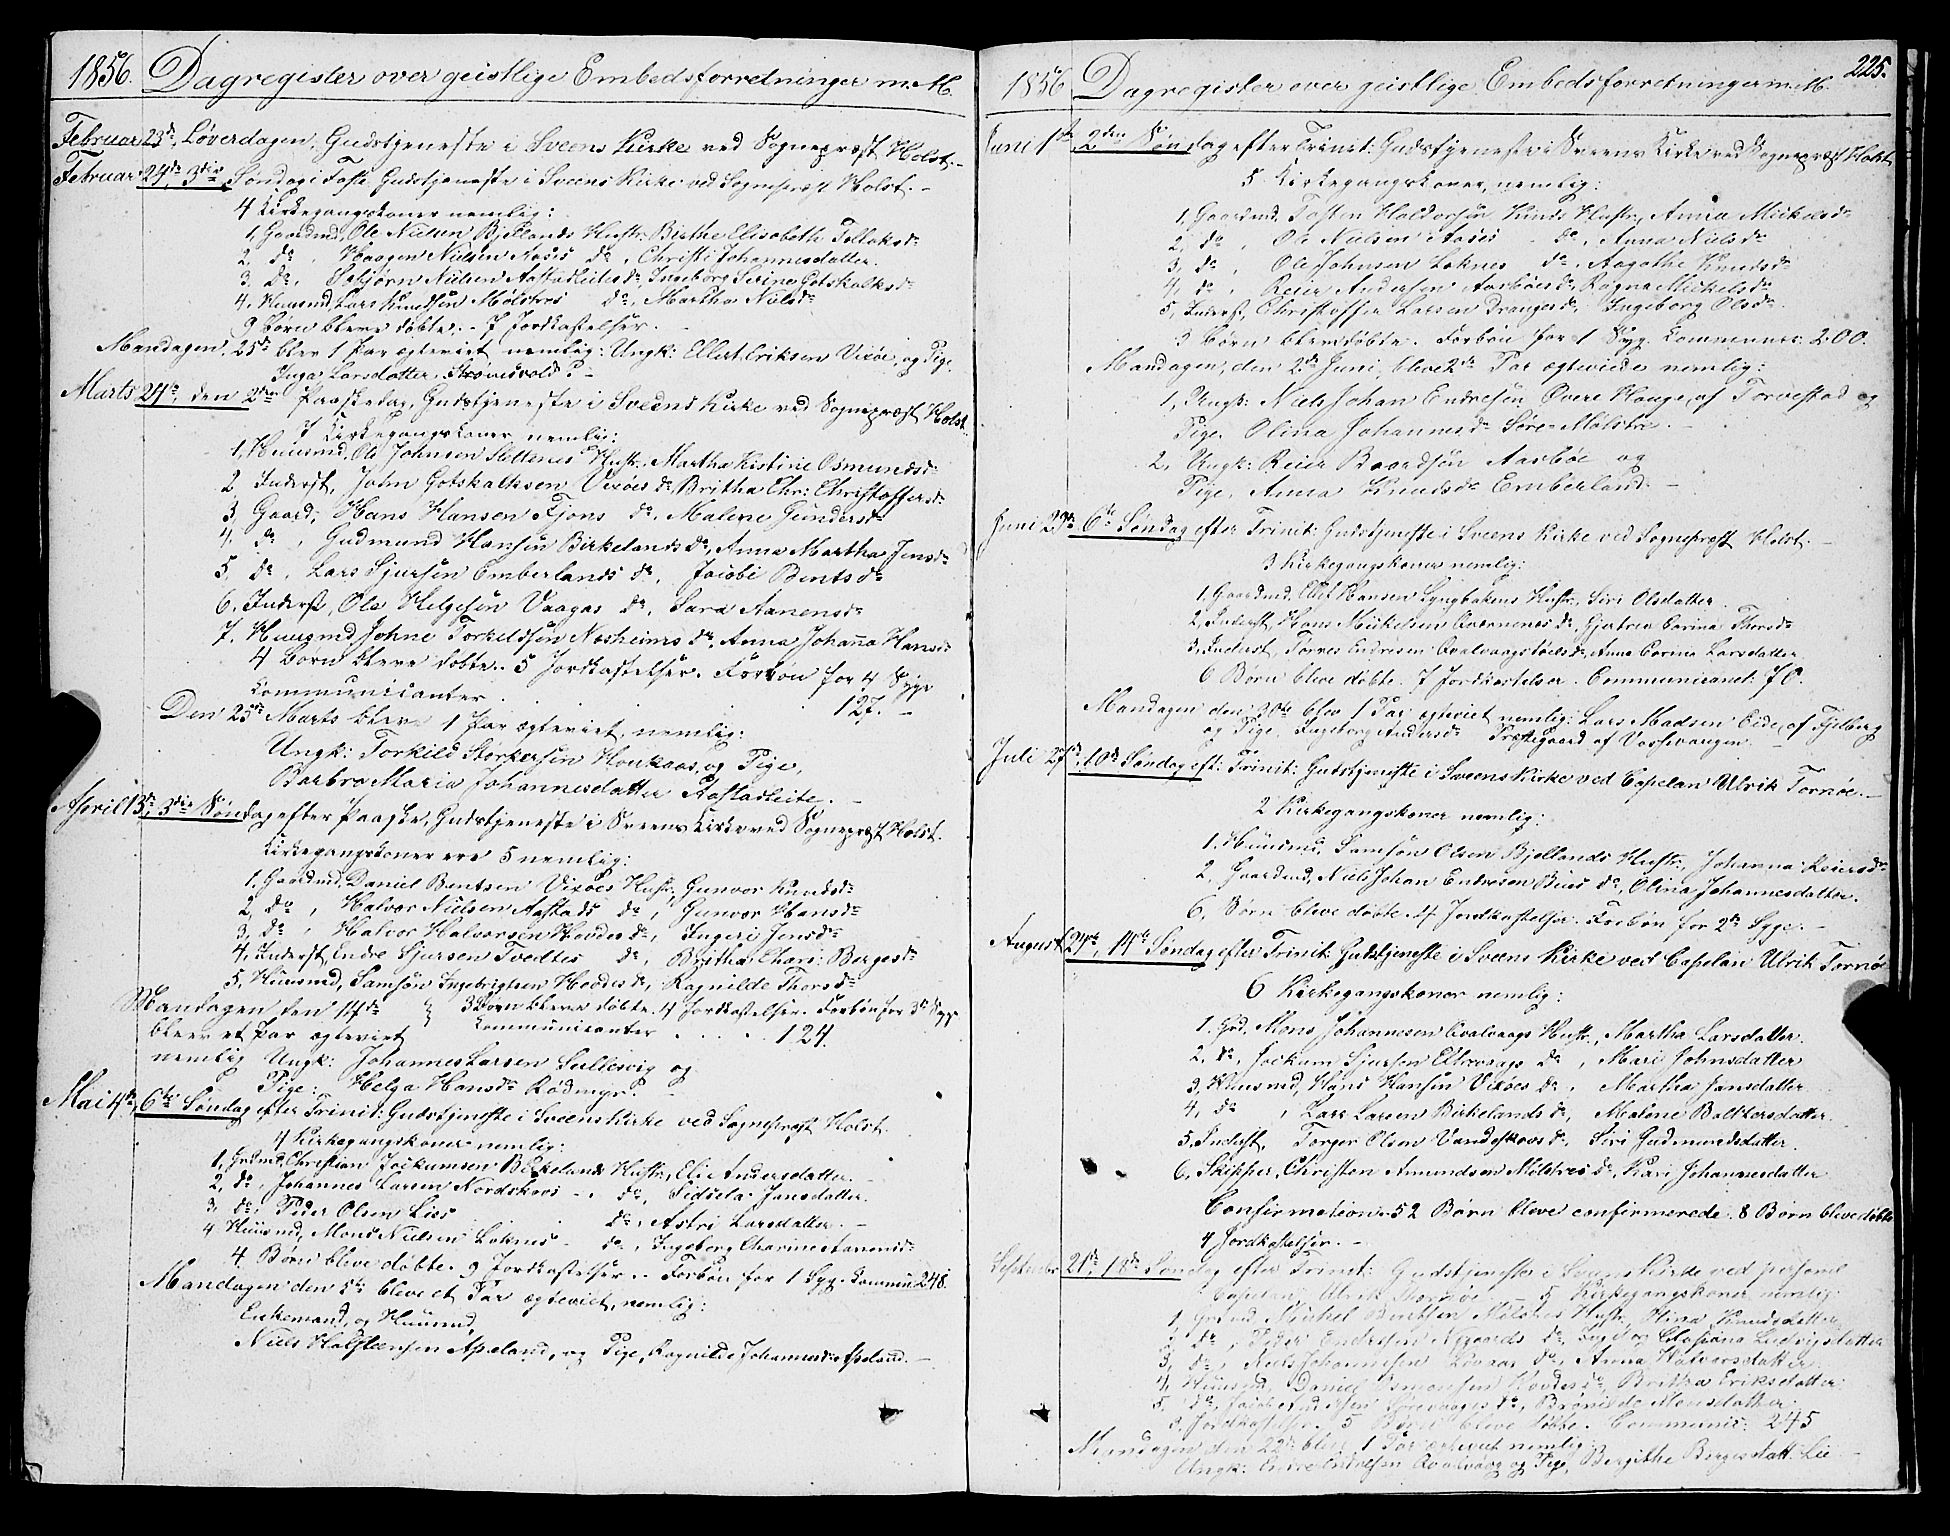 1856. Dagregister over geistlige Embedsforretninger m.M.
Februar 23de, Løverdagen, Gudstjeneste i Sveens Kirke ved Sognepræst Holst.
Februar 24de, 3die Søndag i Faste Gudstjeneste i Sveens Kirke ved Sognepræst Holst.
4 Kirkegangskoner nemlig:
1, Gaardmd. Ole Nielsen Bjellands Hustr. Birthe Elisabeth Tolloksdr
2, do, Haagen Nielsen Aases do, Christi Johannesdatter.
3, do, Osbjørn Nielsen Aastadleites do, Ingeborg Serine Gotskalksdr
4, Huusmd, Lars Knudsen Mølstres do, Martha Nielsdr
9 Børn bleve døbte. 7 Jordkastelser.
Mandagen, 25de blev 1 Par ægteviet nemlig: Ungk: Ellert Eriksen Vixøe, og Pige,
Inga Larsdatter
Marts 24de, den 2den Paaskedag, Gudstjeneste i Sveens Kirke ved Sognepræst Holst.
7 Kirkegangskoner nemlig:
1, Huusmd, Ole Johnsen Slettenes Hustr. Martha Kistine Osmundsdr
2, Inderst, John Gotskalksen Vixøes do Britha Chr: Christoffersdr
3, Gaard, Hans Hansen Fjons do, Malene Gundersdr
4, do, Gudmund Hansen Birkelands do, Anna Martha Jensdr
5, do, Lars Sjursen Emberlands do, Jacobi Bentsdr
6, Inderst, Ole Helgesen Vaagas do, Sara Aanensdr
7, Huusmd Johne Torkeldsen Nesheims do, Anna Johanna Hansdr
4 Børn bleve døbte. 5 Jordkastelser. Forbøn for 4 Syge
Communicanter 127.
Den 25de Marts blev 1 Par ægteviet, nemlig:
Ungk: Torkild Storkersen Houkaas, og Pige,
Barbro Maria Johannesdatter Aastadleite.
April 13de, 3die Søndag efter Paaske, Gudstjeneste i Sveens Kirke ved Sognepræst Holst.
Kirkegangskoner ere 5 nemlig:
1, Gaardmd, Daniel Bentsen Vixøes Hustr, Gunvor Knudsdr
2, do, Halvor Nielsen Aastads do, Gunvor Hansdr
3, do, Halvor Halvorsen Hovdes do, Ingeri Jensdr
4, Inderst, Endre Sjursen Tvedtes do, Britha Chari: Børgesdr
5, Huusmd, Samson Ingebrigtsen Hovdes do, Ragnilde Thorsdr
Mandagen den 14de 3 Børn bleve døbte. 4 Jordkastelser. Forbøn for 3de Syge
blev et Par ægteviet Communicanter 124.
nemlig Ungk: Johannes Larsen Sallesvig og
Pige: Helga Hansdr Rødmyr.
Mai 4de, 6te Søndag efter Trinit: Gudstjeneste i Sveens Kirke ved Sognepræst Holst.
4 Kirkegangskoner nemlig:
1, Grdmd, Christian Jockumsen Birkelands Hustr, Eli Andersdatter.
2, do, Johannes Larsen Nordskovs do, Sidsela Jansdatter.
3, do, Peder Olsen Lies do, Astri Larsdatter.
4 Huusmd, Mons Nielsen Loknes do, Ingeborg Charine Aanensdr
4 Børn bleve døbte. 9 Jordkastelser. Forbøn for 1 Syg. Commun: 248.
Mandagen den 5te bleve et Par ægteviet, nemlig:
Enkemand, og Huusmd,
Niels Halsteensen Apeland, og Pige, Ragnilde Johannesdr Apeland.
225.
1856 Dagregister over geistlige Embedsforretninger m.M.
Juni 1ste, 2den Søndag efter Trinit: Gudstjeneste i Sveens Kirke ved Sognepræst Holst
5 Kirkegangskoner, nemlig:
1, Gaardmd. Tosten Haldorsen Hustr, Anna Mickelsdr
2, do, Ole Nielsen Aases do, Anna Nielsdr
3, do, Ole Johnsen Loknes do, Aagathe Knudsdr
4, do, Reier Andersen Aasbøes do, Ragna Mickelsdr
5, Inderst, Christoffer Larsen Dranges do, Ingeborg Olsdr
3 Børn bleve døbte. Forbøn for 1 Syg. Communic: 200.
Mandagen, den 2den Juni, bleve 2de Par ægteviede nemlig:
1, Ungk: Niels Johan Endresen Øvere Hauge, af Torvestad og
Pige. Olina Johannesdr Søre-Mølstre.
2, Ungk: Reier Baardsen Aasbøe og
Pige, Anna Knudsdr Emberland.
Juni 29de, 6te Søndag efter Trinit: Gudstjeneste i Sveens Kirke ved Sognepræst Holst.
3 Kirkegangskoner nemlig:
1, Gaardmd. Ellef Hansen Lyngbakens Hustr, Siri Olsdatter.
2, Inderst, Hans Mickelsen Qvernenes do, Gjertrud Carina Thorsdr
3, Inderst, Tørres Endresen Qvalvaagstøels do, Anna Carina Larsdatter
6 Børn bleve døbte. 7 Jordkastelser. Communicant: 70.
Mandagen den 30te blev 1 Par ægteviet nemlig: Lars Madsen Eide, af Fjelberg
og Pige, Ingeborg Andersdr Præstegaard af Vossevangen
Juli 27de, 10de Søndag eft: Trinit: Gudstjeneste i Sveens Kirke ved Capelan Ulrik Tornøe.
2 Kirkegangskoner nemlig:
1, Huusmd, Samson Olsen Bjellands Hustr, Johanna Reiersdr
2, Gaardmd, Niels Johan Endresen Bues do, Olina Johannesdatter.
6, Børn bleve døbte. 4 Jordkastelser. Forbøn for 2de Syge.
August 24de, 14de Søndag efter Trinit: Gudstjeneste i Sveens Kirke ved Capelan Ulrik Tornøe
6 Kirkegangskoner nemlig:
1. Grd. Mons Johannesen Qvalvaags Hustr, Martha Larsdatter.
2, do, Jockum Sjursen Eltravags do, Mari Johnsdatter
3, Huusmd, Hans Hansen Vixøes do, Martha Jansdatter
4, do, Lars Larsen Birkelands do, Malene Balthersdatter.
5, Inderst, Torger Olsen Vandeskovs do, Siri Gudmundsdatter.
6, Skipper, Christen Amundsen Mølstres do, Kari Johannesdatter
Confirmation. 52 Børn bleve confirmerede. 8 Børn bleve døbte
4 Jordkastelser.
September 21de, 18de Søndag efter Trinit: Gudstjeneste i Sveens Kirke ved personel
Capelan, Ulrik Tornøe. 5 Kirkegangskoner, nemlig:
1, Grdmd Mickel Bentsen Mølstres Hustr, Olina Knudsdatter
2, do, Peder Endresen Nygaards do, Inger og Ludvigsdatter
3, do, Niels Johannesen do, Anna Halvorsdatter
4, Huusmd, Daniel Osmondsen Hovdes do, Britha Eriksdatter
5, do, Jacob do, Monsdatter.
3, Jordkastelser. 5 Børn bleve døbte. Communic: 245
Mandagen den 22de blev 1 Par ægteviet nemlig:
Ungk: Endre Endresen Qvalvaag og Pige, Bergithe Børgesdatt. Lie